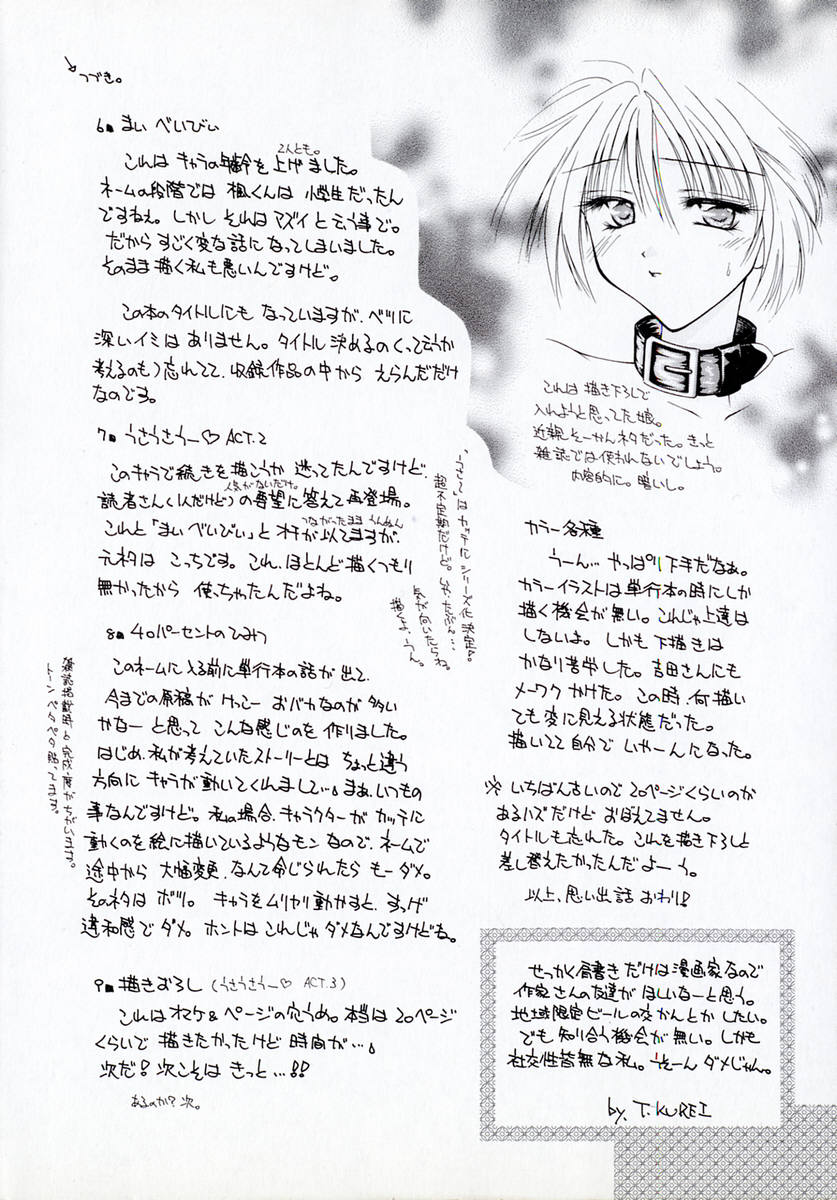 つづき。
6■ まい べいびぃ
2人とも。
これは キャラの年齢を上げました。
ネームの段階では 楓くんは 小学生だったん
ですねぇ。しかし それは マズイ と云う事で。
だから すごく変な話に なってしまいました。
そのまま描く私も悪いんですけど。
この本のタイトルにも なっていますが、べつに
深いイミは ありません。タイトル 決めるの(って云うか
考えるのも)忘れてて、収録作品の中から えらんだだけ
なのです。
7■ うさうさうー♡ ACT.2
このキャラで続きを描こうか 迷ってたんですけど、
人気がないだけ。
読者さん(1人だけど)の要望に答えて再登場。
つながったまま うんぬん
これと「まい べいびぃ」と オチが似てますが、
元ネタは こっちです。これ、ほとんど描くつもり
無かったから 使っちゃったんだよね。
超不定期だけど。
気が向いたらね。
描くよ、うん。
8■ 40パーセントのひみつ
このネームに入る前に単行本の話が 出て、
今までの原稿が けっこー おバカなのが 多い
かなー と思って こんな感じのを 作りました。
はじめ、私が考えていたストーリーとは ちょっと違う
方向に キャラが動いてくれまして…。まぁ、いつもの
事なんですけど。私の場合、キャラクターが カッテに
動くのを絵に描いているようなモン なので、ネームで
途中から 大幅変更、なんて命じられたら もーダメ。
そのネタは ボツ。 キャラをムリヤリ動かすと、すっげ
違和感で ダメ。ホントは これじゃ ダメなんですけどね。
雑誌掲載時と完成度がちがいます。
トーン ペタペタ貼ってます。
9■ 描きおろし (うさうさうー♡ ACT.3)
これは オマケ&ページの穴うめ。本当は 20ページ
くらいで 描きたかったけど 時間が…。
次だ! 次こそは きっと…!!
あるのか? 次。
これは 描き下ろしで
入れようと思ってた娘。
近親そーかんネタだった。きっと
雑誌では使われないでしょう。
内容的に。暗いし。
カラー各種
うーん… やっぱり下手だなぁ。
カラーイラストは 単行本の時にしか
描く機会が無い。これじゃ上達は
しないよ。しかも 下描きは
かなり苦労した。吉田さんにも
メーワク かけた。この時、何描い
ても変に見える状態だった。
描いてて自分で いやーんになった。
※ いちばん古いので 20ページくらいのが
あるハズだけど おぼえてません。
タイトルも忘れた。これを描き下ろしと
差し替えたかったんだよーう。
以上、思い出話 おわり!
せっかく肩書きだけは漫画家なので
作家さんの友達が ほしいなーと思う。
地域限定ビールの交かんとか したい。
でも 知り合う機会が 無い。しかも
社交性皆無な私。うそーん ダメじゃん。
by. T.KUREI